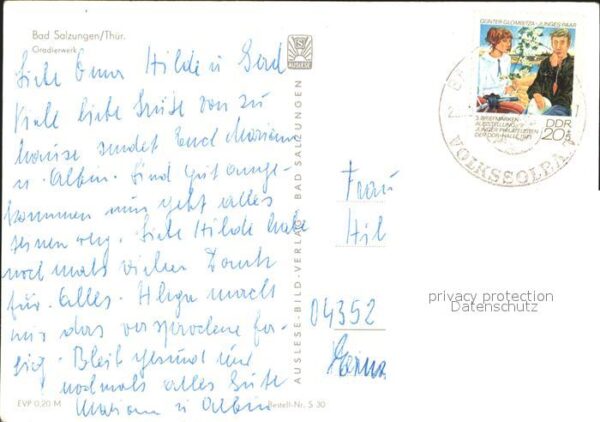 Bad Salzungen/Thür.
Gradierwerk
Liebe Oma Hilde u Gerd
Viele liebe Grüße von zu
hause sendet Euch Marianne
u. Albin. Sind gut ange-
kommen nun geht alles
seinen weg. Liebe Hilde habe
noch mals vielen Dank
für alles. Helga macht
mir das versprochene fer-
tig. Bleib gesund und
nochmals alles Gute
Mariann u Albin
EVP 0,20 M
Bestell-Nr. S 30
AUSLESE
AUSLESE-BILD-VERLAG BAD SALZUNGEN
GÜNTER GLOMBITZA · JUNGES PAAR
3. BRIEFMARKEN-
AUSSTELLUNG
JUNGER PHILATELISTEN
DER DDR · HALLE 1981
DDR
20
VOLKSSOLBAD
Frau
Hil
04352
privacy protection
Datenschutz